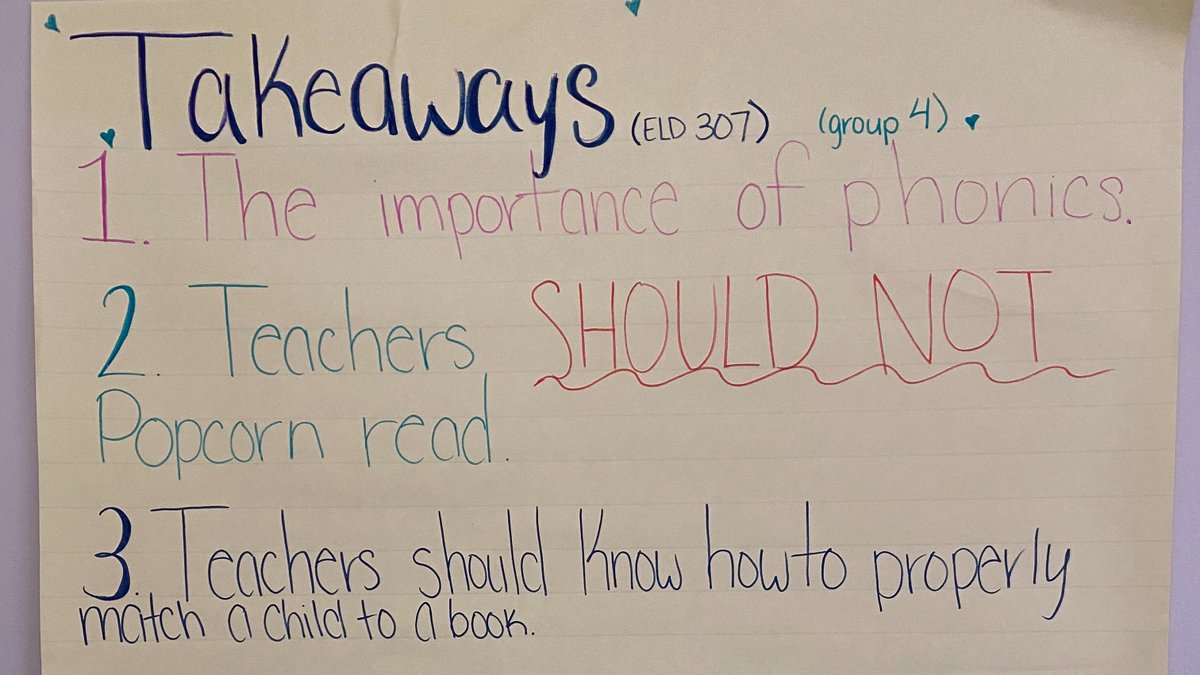 Takeaways (ELD 307) (group 4)
1. The importance of phonics.
2. Teachers SHOULD NOT
Popcorn read.
3. Teachers should know how to properly
match a child to a book.